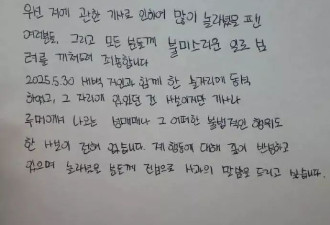 우선 저에 관한 기사로 인하여 많이 놀라셨을 팬
여러분들, 그리고 모든 분들께 불미스러운 일로 심
려를 끼쳐드려 죄송합니다
2025.5.30 새벽 지인과 함께 한 술자리에 동석
하였고, 그 자리에 있었던 건 사실이지만 기사나
루머에서 나오는 성매매나 그 어떠한 불법적인 행위도
한 사실이 전혀 없습니다. 제 행동에 대해 깊이 반성하고
있으며 놀라셨을 분들께 진심으로 사과의 말씀을 드리고 싶습니다.